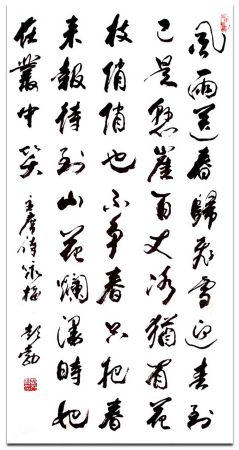 風雨送春歸飛雪迎春到
已是懸崖百丈冰猶有花
枝俏俏也不争春只把春
来報待到山花爛漫時她
在叢中笑
主席詩咏梅 彭勃